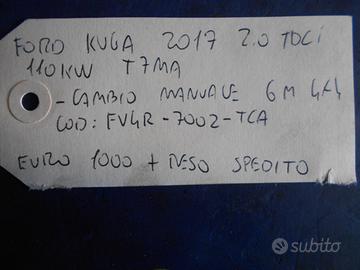 FORD KUGA 2017 2.0 TDCi
110KW T7MA
- CAMBIO MANUALE 6M 4x4
COD: FV4R - 7002 - TCA
EURO 1000 + RESO SPEDITO
subito